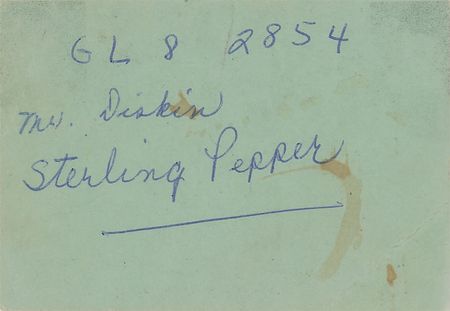 GL 8 2854
Mr. Diskin
Sterling Pepper